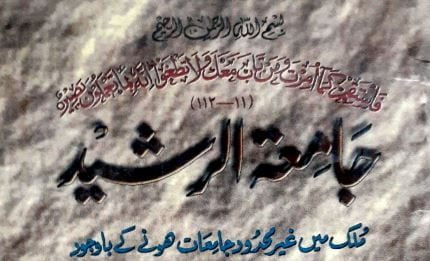 بسم الله الرحمن الرحيم
فاستقم كما أمرت ومن تاب معك ولا تطغوا إنه بما تعملون بصير
(۱۱—۱۱۲)
جَامِعة الرشيد
مُلک میں غیر محدود جامعات ھونے کے باوجود